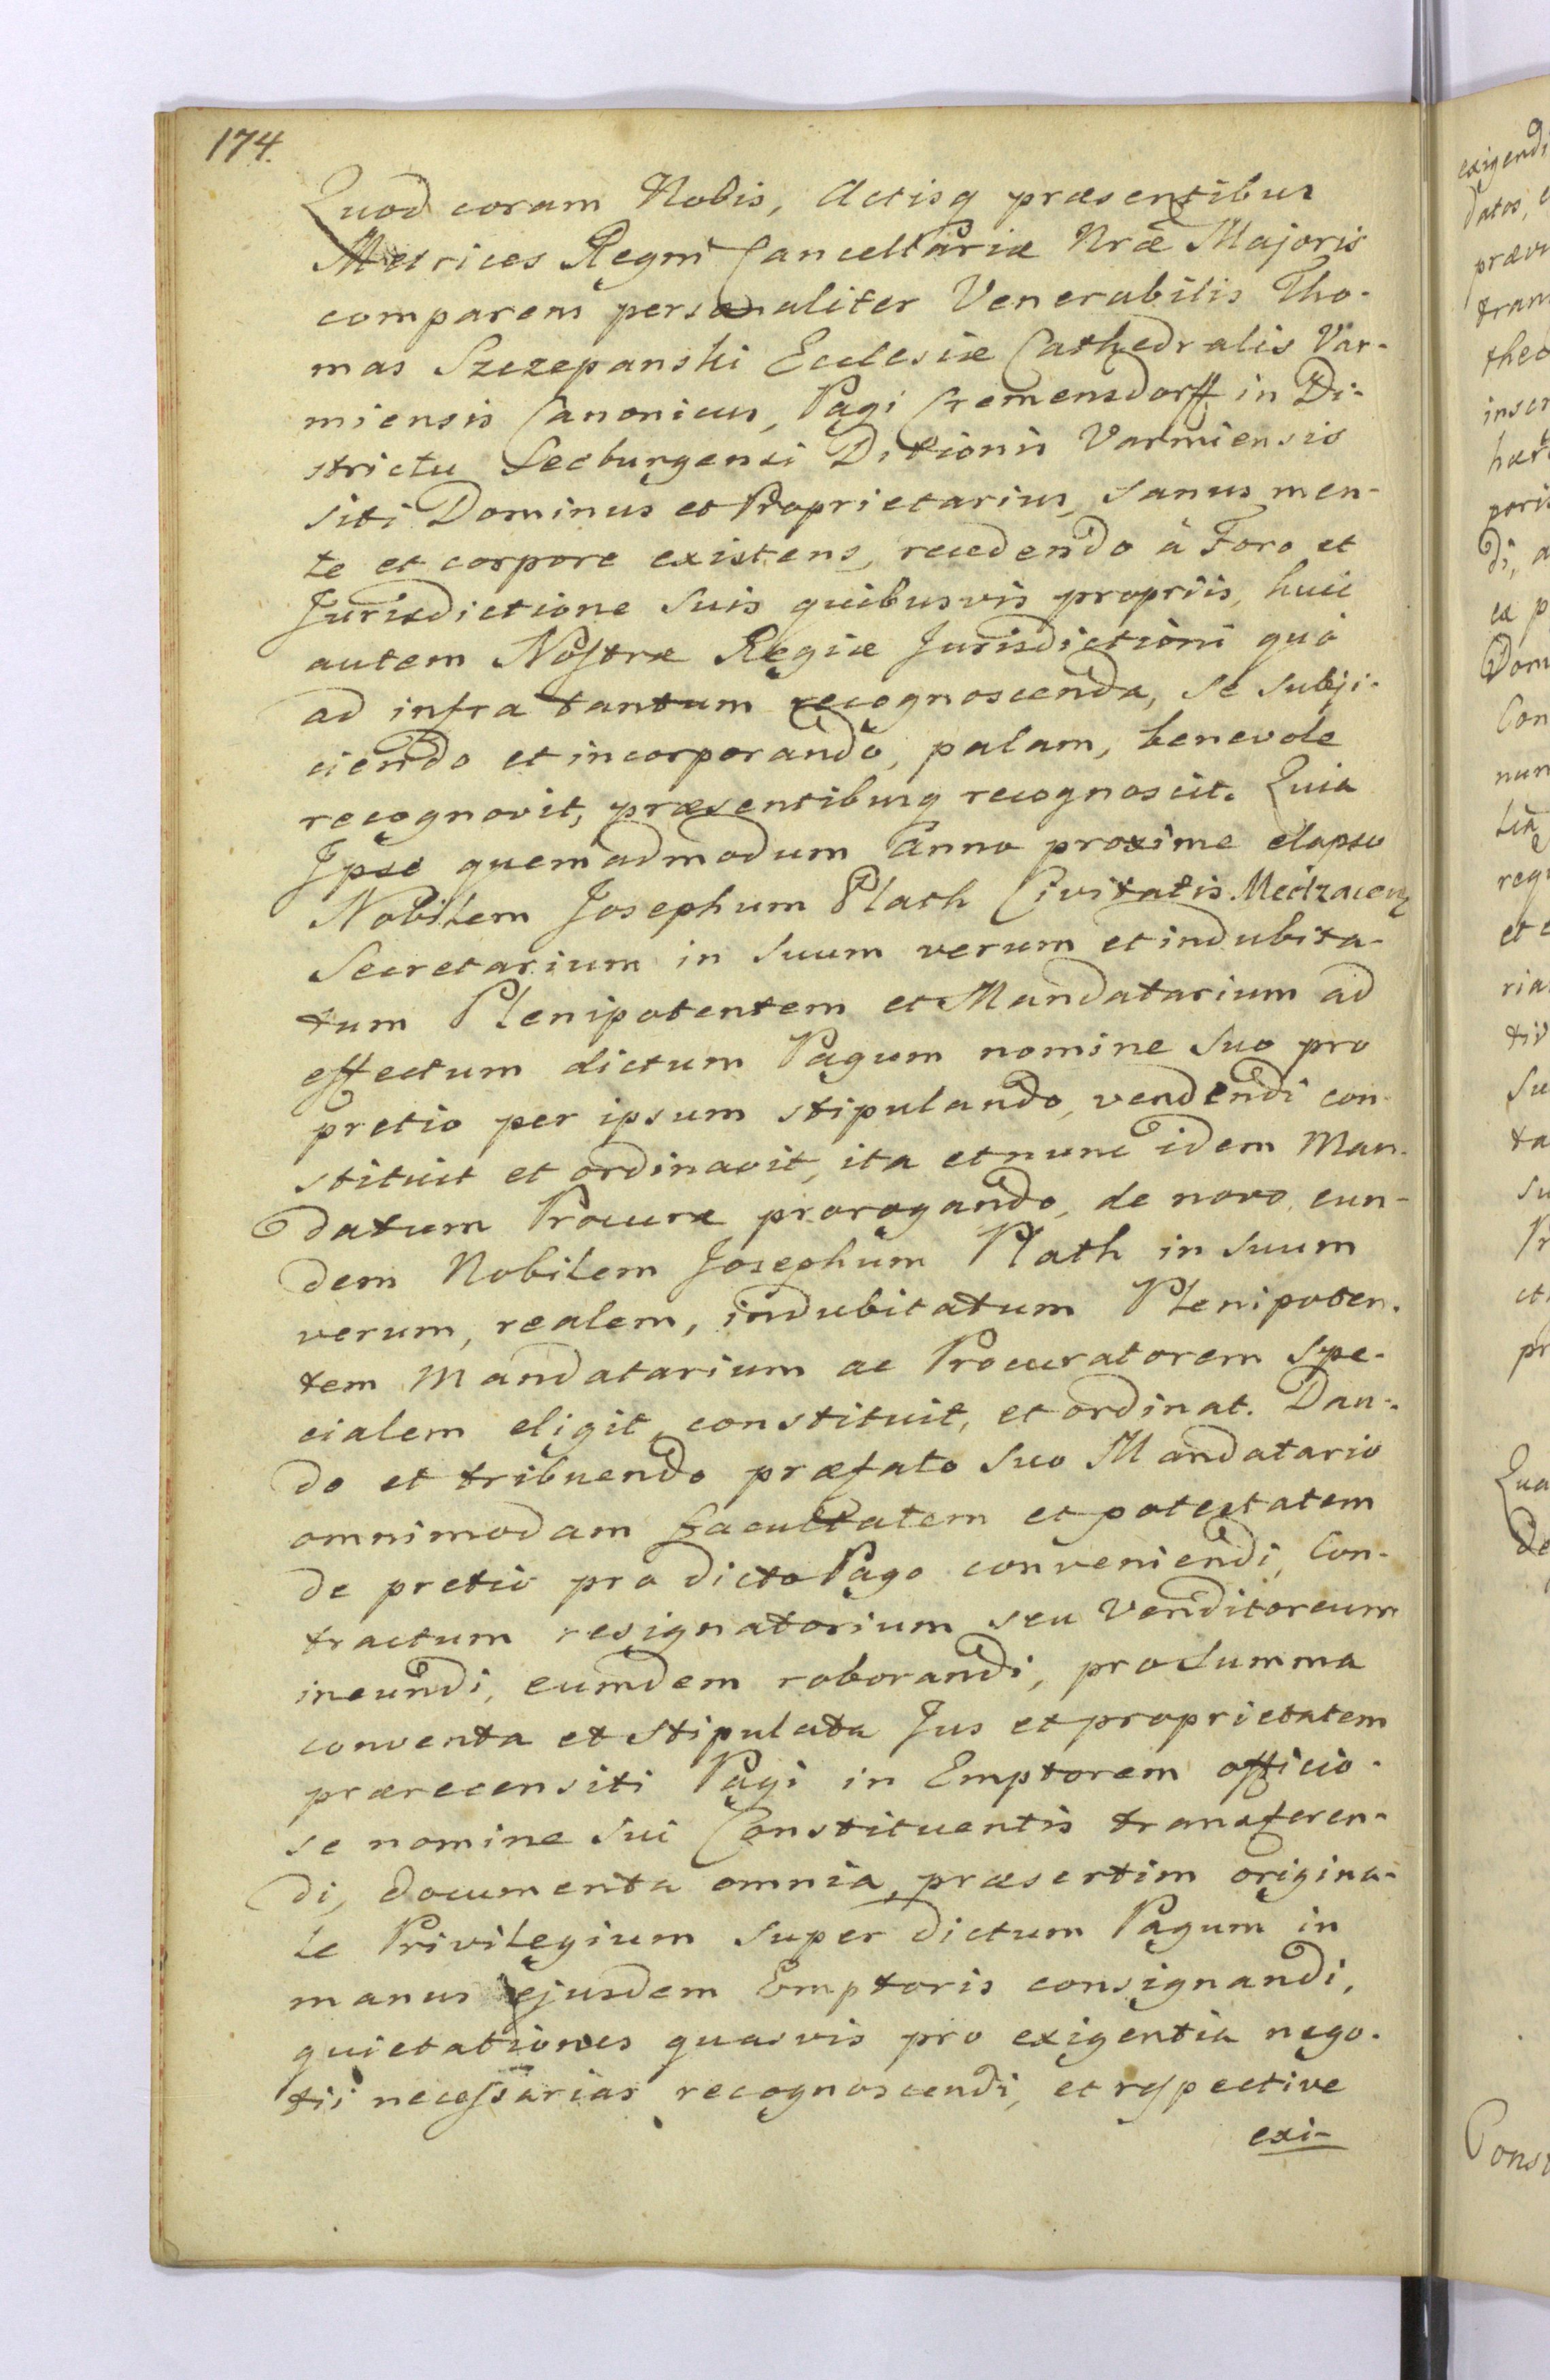 174.
Quod coram Nobis, Actisq præsentibus
Metrices Regni Cancellariæ Nræ Majoris
comparens personaliter Venerabilis Tho-
mas Szczepanski Ecclesiæ Cathedralis Var-
miensis Canonicus, Pagi Cremensdorff in Di-
strictu Seeburgensi Ditionis Varmiensis
siti Dominus et Proprietarius, sanus men-
te et corpore existens, recedendo à Foro et
Jurisdictione suis quibusvis propriis, huic
autem Nostræ Regiæ Jurisdictioni quò
ad infra tantum recognoscenda, se subji-
ciendo et incorporando, palam, benevole
recognovit, præsentibusq recognoscit. Quia
Ipse quemadmodum Anno proxime elapso
Nobilem Josephum Plath Civitatis
Secretarium in suum verum et indubita-
tum Plenipotentem et Mandatarium ad
effectum dictum Pagum nomine suo pro
pretio per ipsum stipulando, vendendi con-
stituit et ordinavit, ita et nunc idem Man-
datum Procuræ prorogando, de novo eun-
dem Nobilem Josephum Plath in suum
verum, realem, indubitatum Plenipoten-
tem Mandatarium ac Procuratorem spe-
cialem eligit, constituit, et ordinat. Dan-
do et tribuendo præfato suo Mandatario
omnimodam facultatem et potestatem
de pretio pro dicto Pago conveniendi, Con-
tractum resignatorium seu Venditoreum
ineundi, eumdem roborandi, pro summa
conventa et stipulata Jus et proprietatem
prærecensiti Pagi in Emptorem officio-
se nomine sui Constituentis transferen-
di, documenta omnia, præsertim origina-
le Privilegium super dictum Pagum in
manus ejusdem Emptoris consignandi,
quietationes quasvis pro exigentia nego-
tii necessarias recognoscendi, et respective
exi-